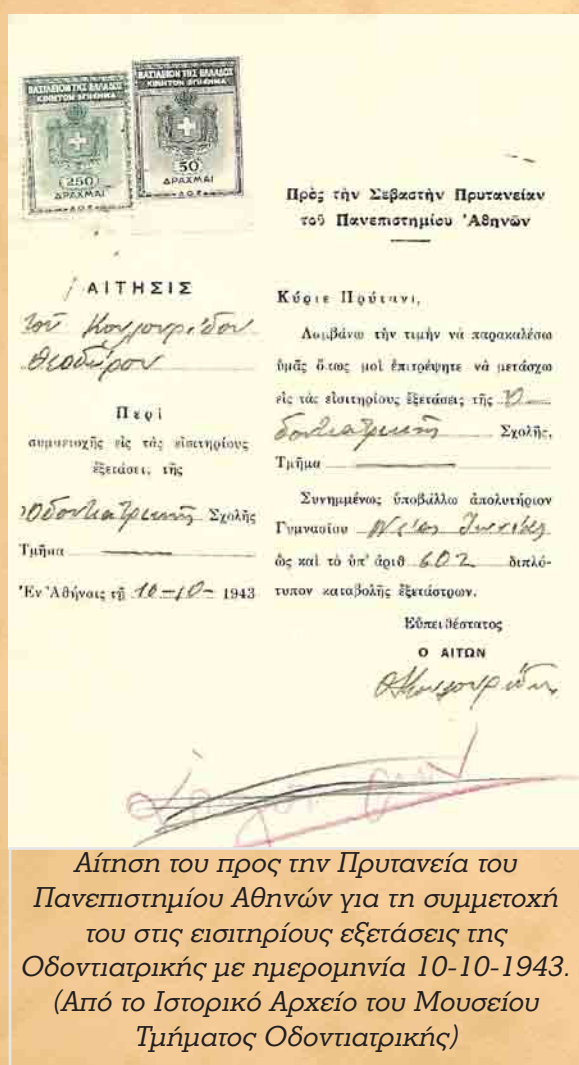 ΒΑΣΙΛΕΙΟΝ ΤΗΣ ΕΛΛΑΔΟΣ
ΚΙΝΗΤΟΝ ΕΠΙΣΗΜΑ
250
ΔΡΑΧΜΑΙ
ΒΑΣΙΛΕΙΟΝ ΤΗΣ ΕΛΛΑΔΟΣ
ΚΙΝΗΤΟΝ ΕΠΙΣΗΜΑ
50
ΔΡΑΧΜΑΙ
Πρὸς τὴν Σεβαστὴν Πρυτανείαν
τοῦ Πανεπιστημίου Ἀθηνῶν
ΑΙΤΗΣΙΣ
τοῦ Κουλουρίδου
Θεοδώρου
Περὶ
συμμετοχῆς εἰς τὰς εἰσιτηρίους
ἐξετάσεις τῆς
Ὀδοντιατρικῆς Σχολῆς
Τμῆμα
Ἐν Ἀθήναις τῇ 10-10- 1943
Κύριε Πρύτανι,
Λαμβάνω τὴν τιμὴν νὰ παρακαλέσω
ὑμᾶς ὅπως μοὶ ἐπιτρέψητε νὰ μετάσχω
εἰς τὰς εἰσιτηρίους ἐξετάσεις τῆς Ὀ
δοντιατρικῆς Σχολῆς,
Τμῆμα
Συνημμένως ὑποβάλλω ἀπολυτήριον
Γυμνασίου Νέας Ἰωνίας
ὡς καὶ τὸ ὑπ' ἀριθ 602 διπλό-
τυπον καταβολῆς ἐξετάστρων.
Εὐπειθέστατος
Ο ΑΙΤΩΝ
Αίτηση του προς την Πρυτανεία του
Πανεπιστημίου Αθηνών για τη συμμετοχή
του στις εισιτηρίους εξετάσεις της
Οδοντιατρικής με ημερομηνία 10-10-1943.
(Από το Ιστορικό Αρχείο του Μουσείου
Τμήματος Οδοντιατρικής)